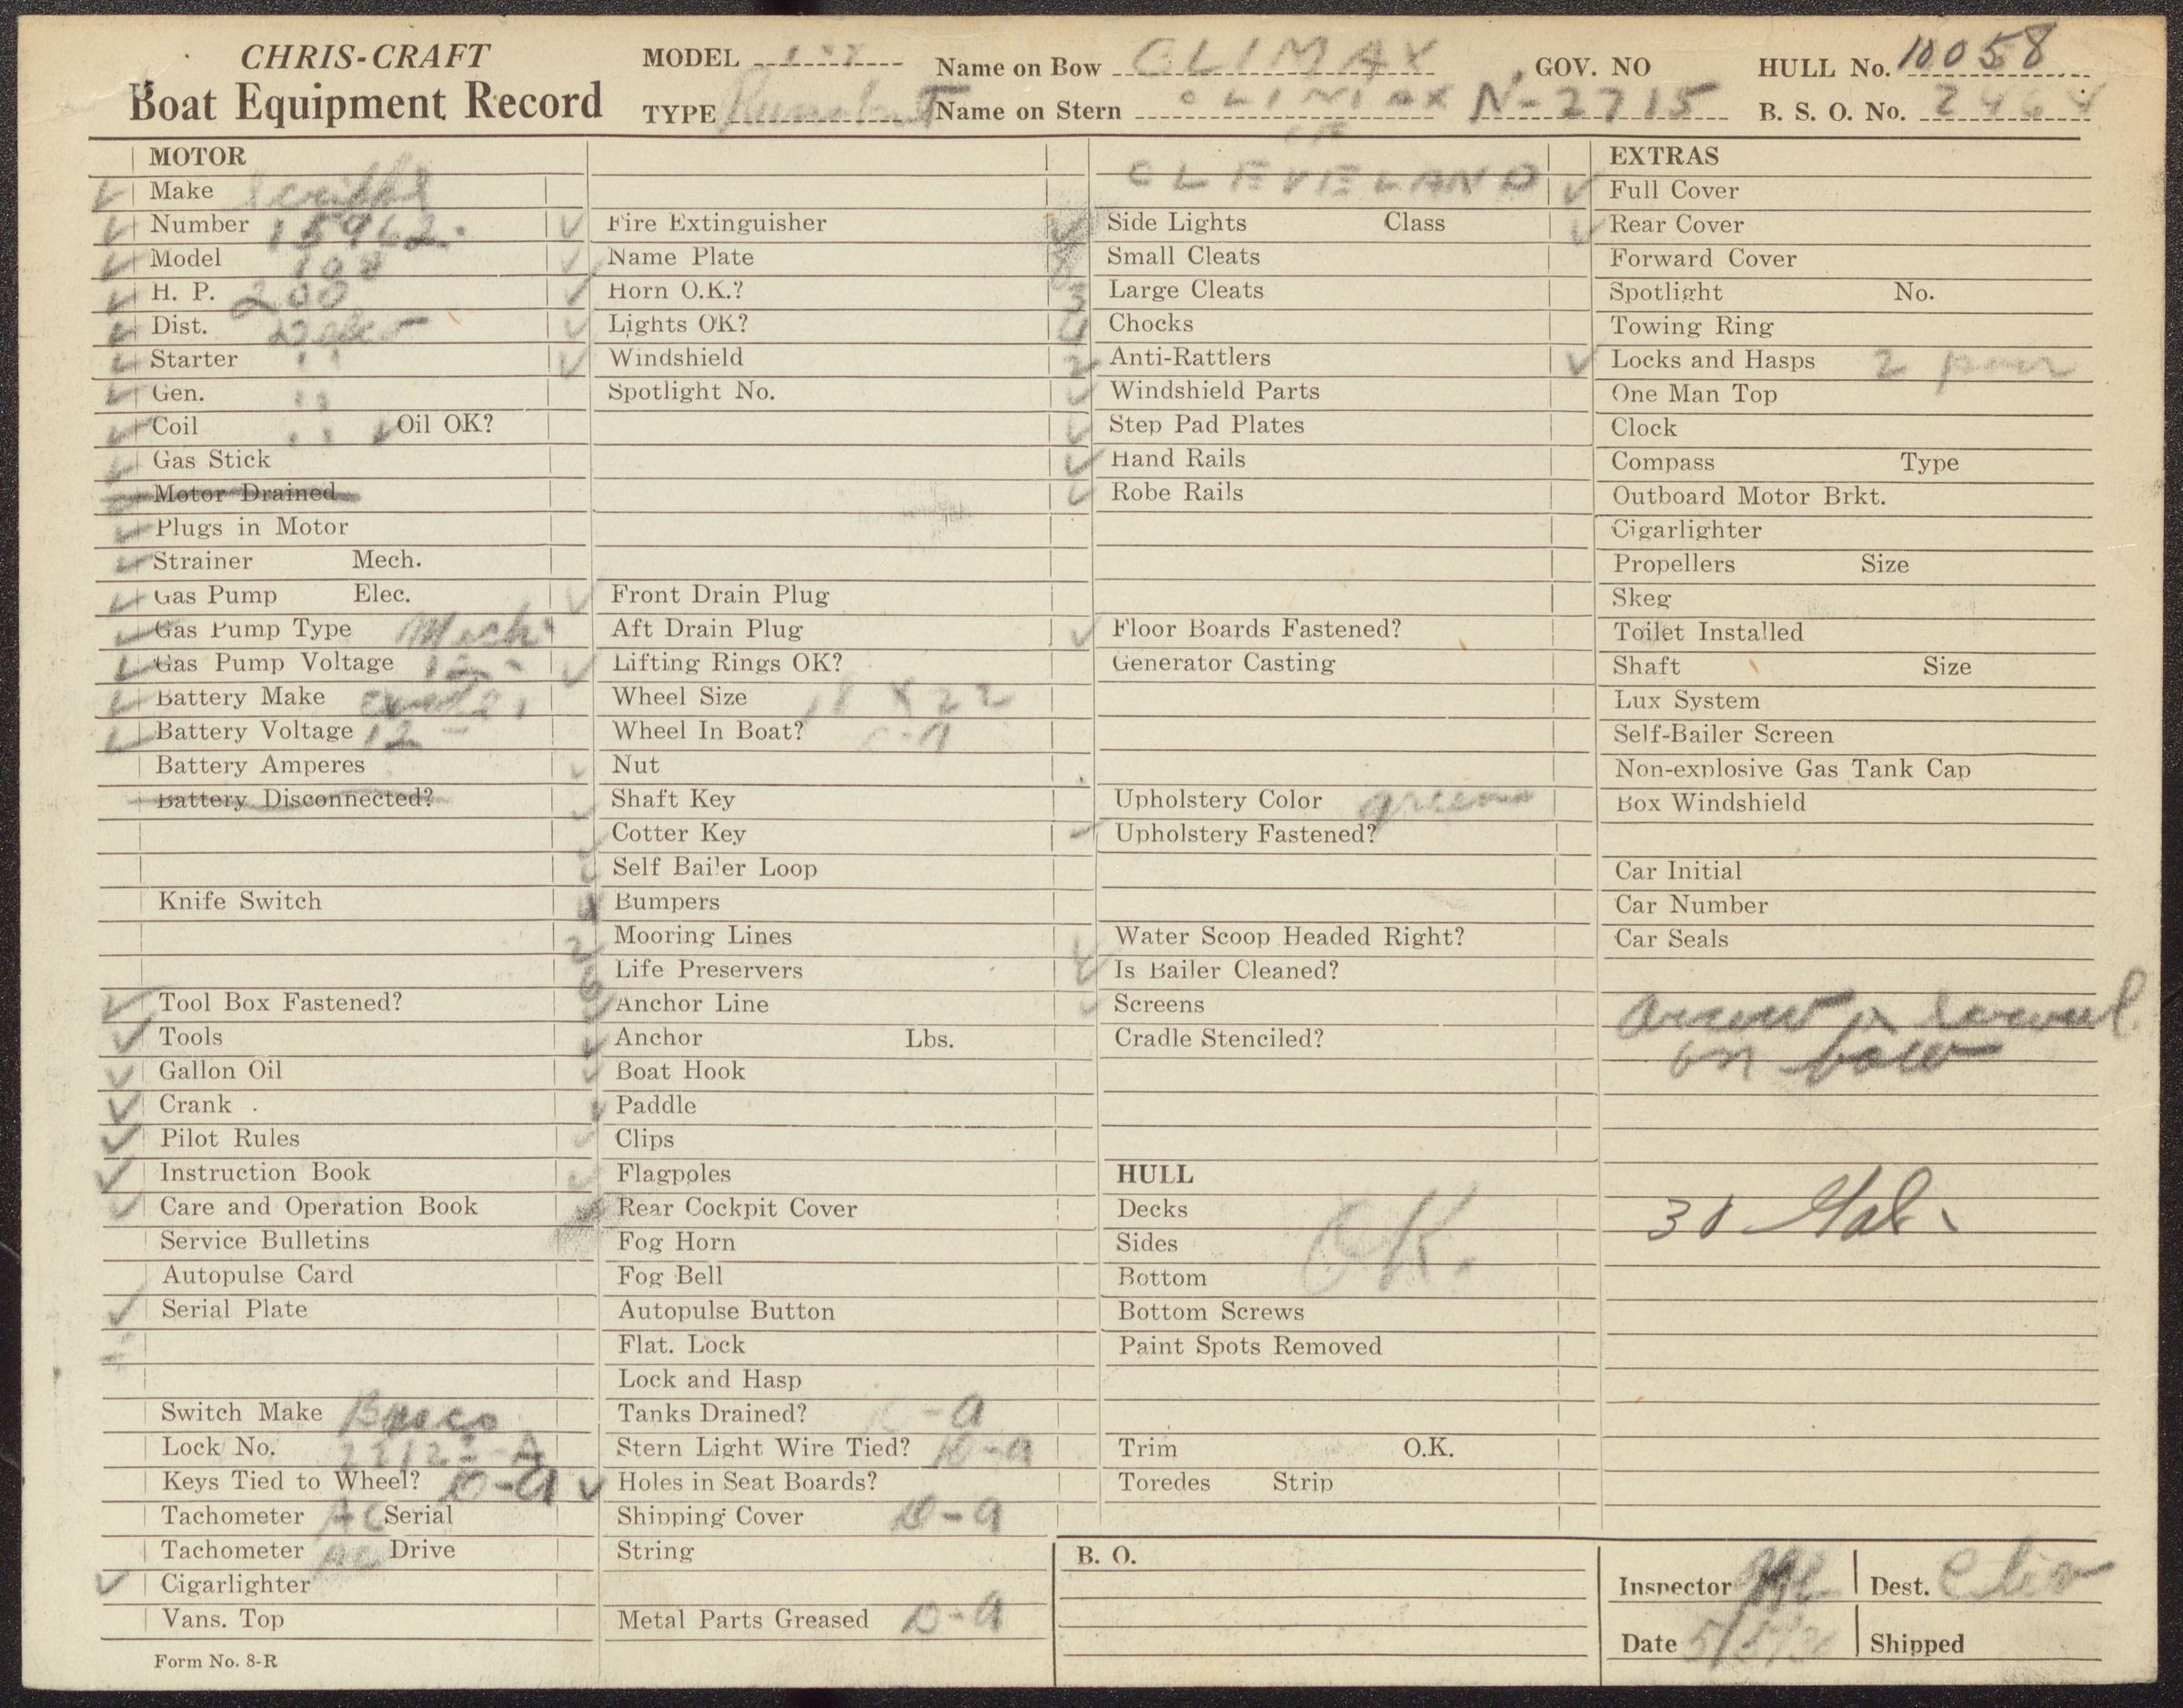 CHRIS-CRAFT
Boat Equipment Record
MODEL
TYPE Runabout
Name on Bow CLIMAX
Name on Stern CLIMAX
CLEVELAND
GOV. NO
N-2715
HULL No. 10058
B. S. O. No. 2464
MOTOR
Make Scripps
Number 15962
Model
H. P. 200
Dist. Delco
Starter " "
Gen. " "
Coil " " Oil OK?
Gas Stick
Motor Drained
Plugs in Motor
Strainer Mech.
Gas Pump Elec.
Gas Pump Type Mech
Gas Pump Voltage 12
Battery Make
Battery Voltage 12
Battery Amperes
Battery Disconnected?
Knife Switch
Tool Box Fastened?
Tools
Gallon Oil
Crank
Pilot Rules
Instruction Book
Care and Operation Book
Service Bulletins
Autopulse Card
Serial Plate
Switch Make
Lock No.
Keys Tied to Wheel? D-A
Tachometer AC Serial
Tachometer AC Drive
Cigarlighter
Vans. Top
Form No. 8-R
Fire Extinguisher
Name Plate
Horn O.K.?
Lights OK?
Windshield
Spotlight No.
Front Drain Plug
Aft Drain Plug
Lifting Rings OK?
Wheel Size 18 X 22
Wheel In Boat?
Nut
Shaft Key
Cotter Key
Self Bailer Loop
Bumpers
2 Mooring Lines
6 Life Preservers
Anchor Line
Anchor Lbs.
Boat Hook
Paddle
Clips
Flagpoles
Rear Cockpit Cover
Fog Horn
Fog Bell
Autopulse Button
Flat. Lock
Lock and Hasp
Tanks Drained? D-A
Stern Light Wire Tied? D-A
Holes in Seat Boards?
Shipping Cover D-A
String
Metal Parts Greased D-A
Side Lights Class
Small Cleats
3 Large Cleats
4 Chocks
2 Anti-Rattlers
Windshield Parts
Step Pad Plates
Hand Rails
Robe Rails
Floor Boards Fastened?
Generator Casting
Upholstery Color green
Upholstery Fastened?
Water Scoop Headed Right?
Is Bailer Cleaned?
Screens
Cradle Stenciled?
HULL
Decks
Sides OK.
Bottom
Bottom Screws
Paint Spots Removed
Trim O.K.
Toredes Strip
B. O.
EXTRAS
Full Cover
Rear Cover
Forward Cover
Spotlight No.
Towing Ring
Locks and Hasps 2 pair
One Man Top
Clock
Compass Type
Outboard Motor Brkt.
Cigarlighter
Propellers Size
Skeg
Toilet Installed
Shaft Size
Lux System
Self-Bailer Screen
Non-explosive Gas Tank Cap
Box Windshield
Car Initial
Car Number
Car Seals
on bow
30 Gal.
Inspector
Dest. Clev
Date
Shipped